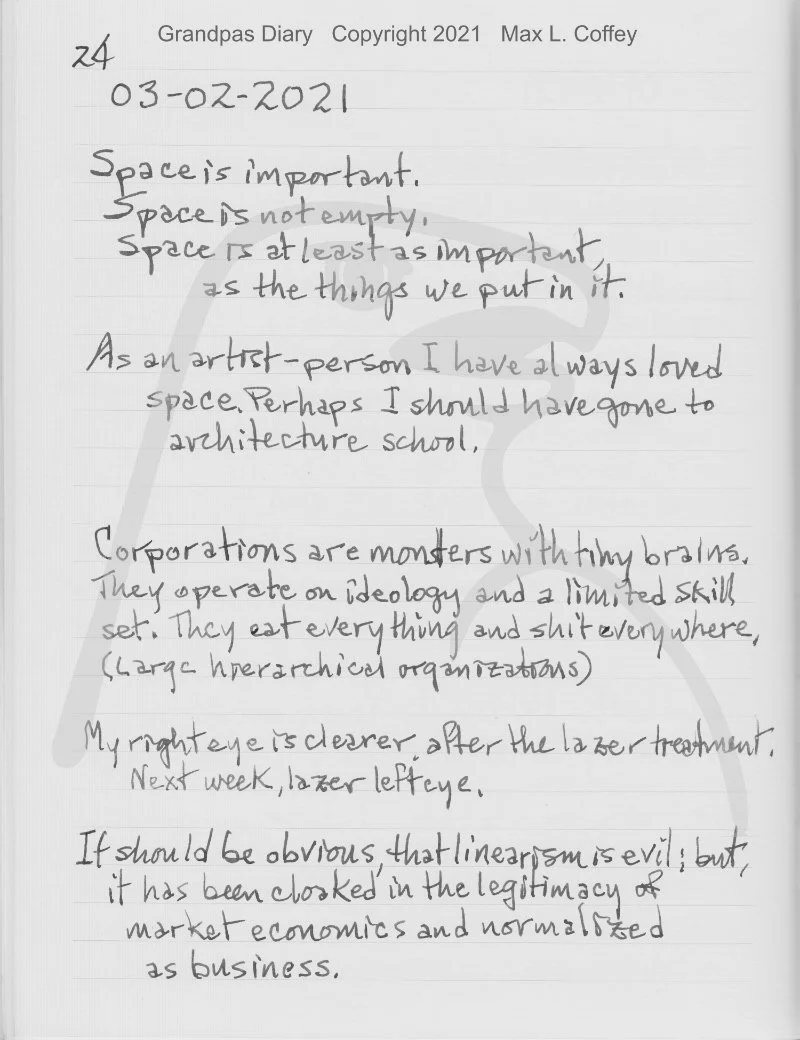 Grandpas Diary Copyright 2021 Max L. Coffey
24
03-02-2021
Space is important.
Space is not empty.
Space is at least as important,
as the things we put in it.
As an artist-person I have always loved
space. Perhaps I should have gone to
architecture school.
Corporations are monsters with tiny brains.
They operate on ideology and a limited skill
set. They eat everything and shit everywhere,
(Large hierarchical organizations)
My right eye is clearer, after the lazer treatment.
Next week, lazer left eye.
It should be obvious, that linearism is evil; but,
it has been cloaked in the legitimacy of
market economics and normalized
as business.